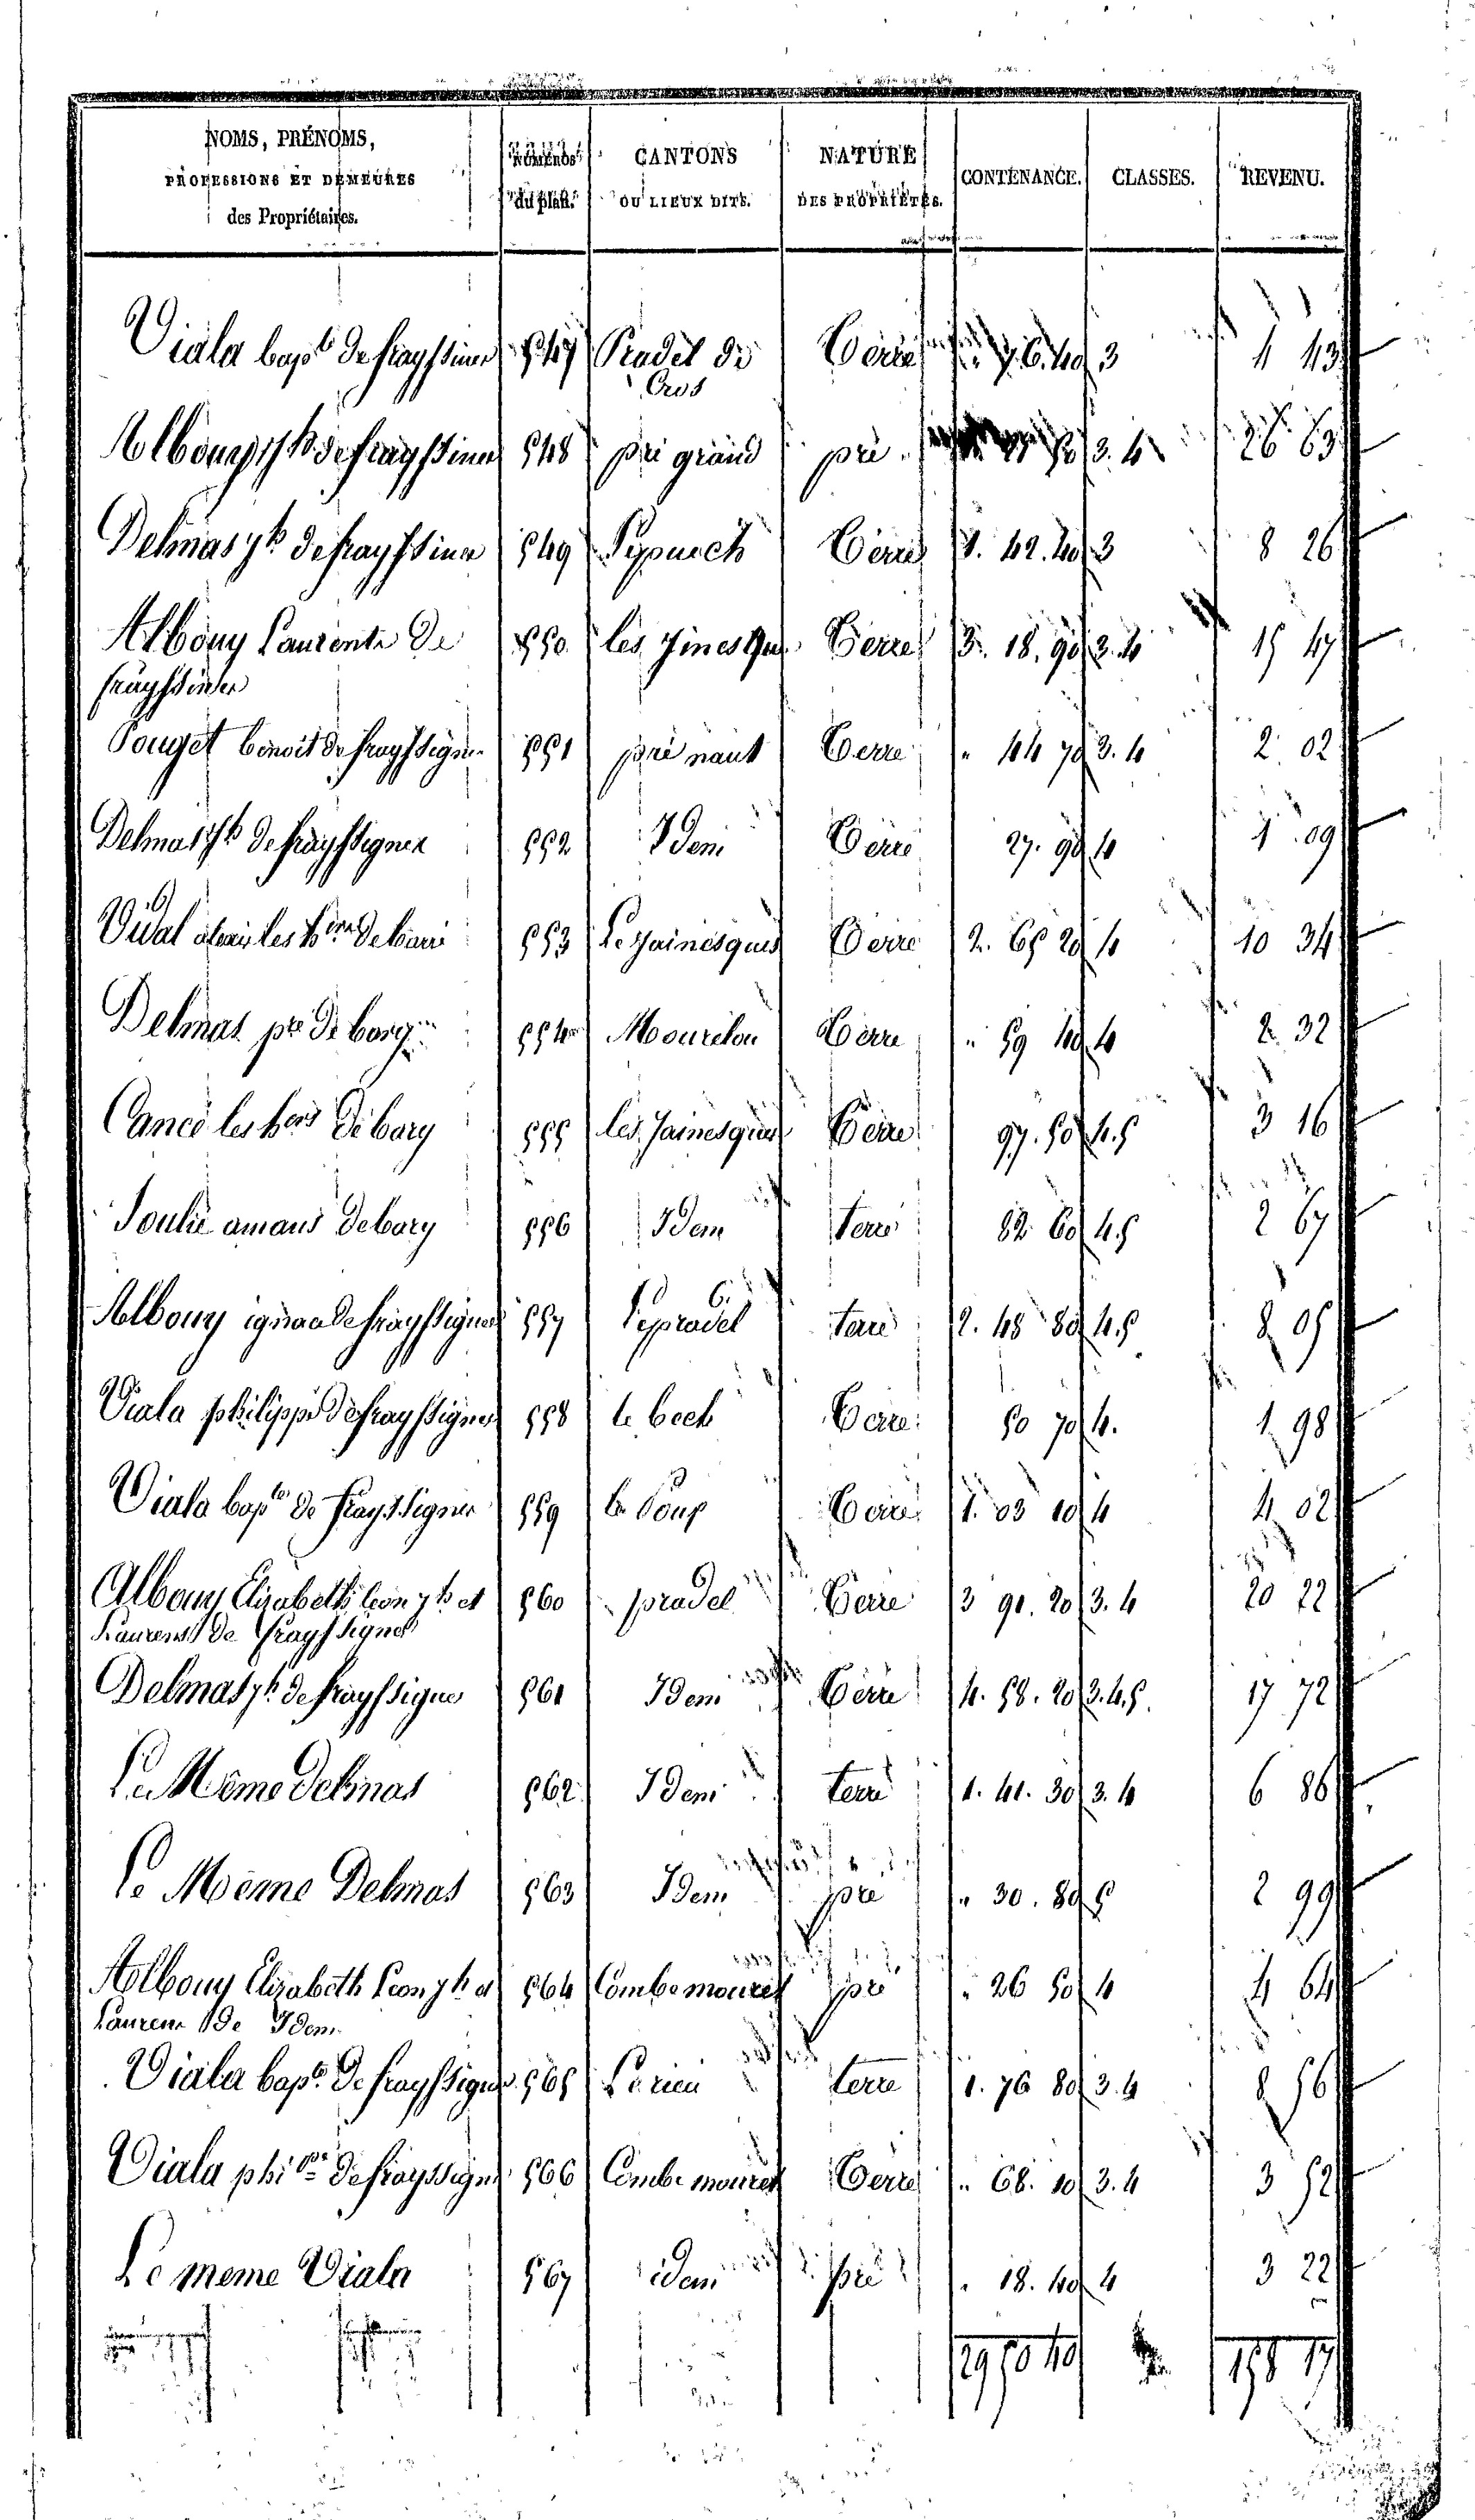 NOMS, PRÉNOMS, PROFESSIONS ET DEMEURES des Propriétaires. NUMÉROS du plan. CANTONS OU LIEUX DITS. NATURE DES PROPRIÉTÉS. CONTENANCE. CLASSES. REVENU.
Viala bap^te de frayssines 547 Pradel de Terre " 76. 40 3 4 43
Cros
Albouy j^h de frayssines 548 pré grand pré 3. 4 26 63
Delmas j^h de frayssines 549 Terre 1. 42. 40 3 8 26
Albouy Laurent de 550 les Terre 3. 18. 90 3. 4 15 47
frayssines
Pouget benoit de frayssignes 551 pré naut Terre " 44 70 3. 4 2 02
Delmas j^h de frayssignes 552 Idem Terre 27. 90 4 1 09
Vidal les h^ers de bari 553 Lesjainesques Terre 2. 65 20 4 10 34
Delmas p^re de bary 554 Mourelou Terre " 59 40 4 2 32
Cance les hers de bary 555 les Jainesques Terre 97. 50 4. 5 3 16
Soulié amans de bary 556 Idem terre 82 60 4. 5 2 67
Albouy ignace de frayssignes 557 Lepradel terre 2. 48 80 4. 5 8 05
Viala philippe de frayssignes 558 le bech Terre 50 70 4. 1 98
Viala bap^te de frayssignes 559 le Terre 1. 03 10 4 4 02
Albouy Elizabeth leon j^h et 560 pradel Terre 3 91. 20 3. 4 20 22
Laurens de frayssignes
Delmas j^h de frayssignes 561 Idem Terre 4. 58. 20 3. 4. 5. 17 72
Le Même Delmas 562 Idem terre 1. 41. 30 3. 4 6 86
Le Même Delmas 563 Idem pré " 30. 80 5 2 99
Albouy Elizabeth Leon j^h et 564 Combe mouret pré " 26 50 4 4 64
Laurens de Idem
Viala bap^te de frayssignes 565 Le rieu terre 1. 76 80 3. 4 8 56
Viala phi^ppe de frayssignes 566 Combe mouret Terre " 68. 10 3. 4 3 52
Le meme Viala 567 idem pré " 18. 40 4 3 22
29 50 40 158 17